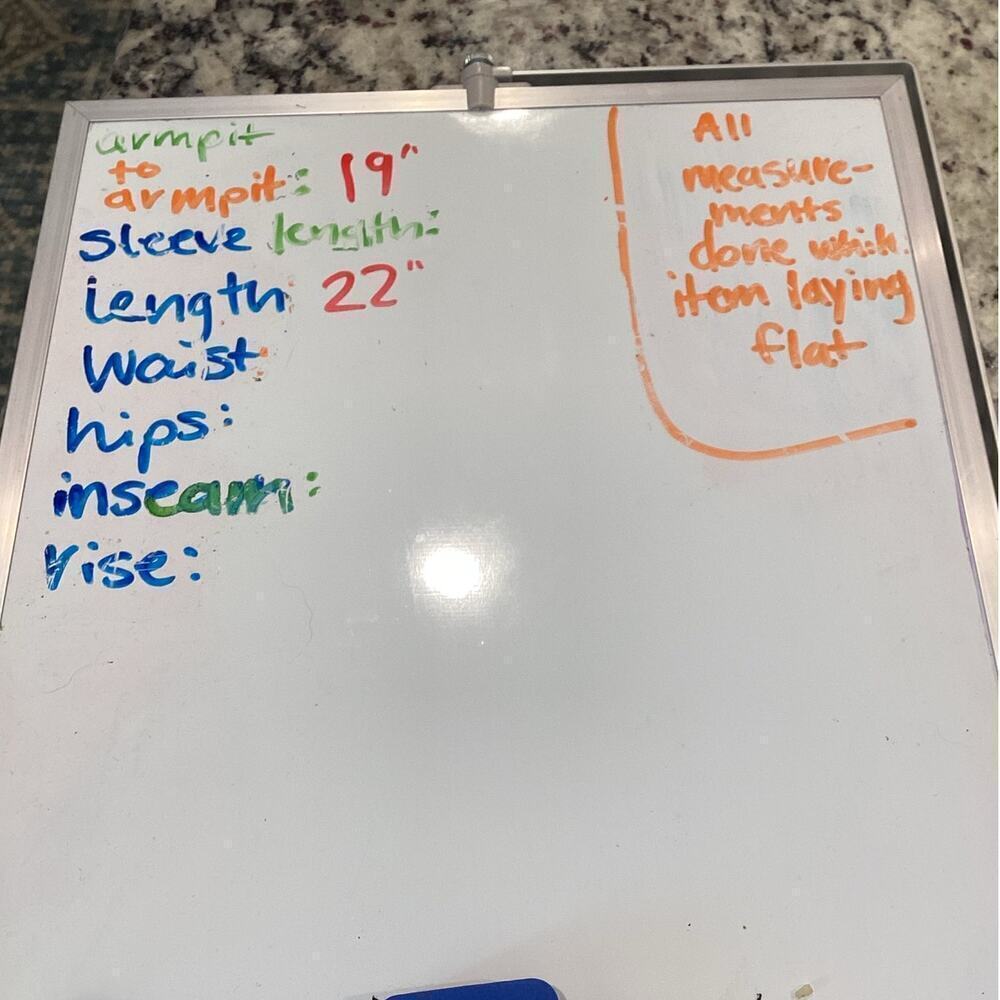 armpit
to
armpit: 19"
sleeve length:
length: 22"
Waist:
hips:
inseam:
rise:
All
measure-
ments
done which
item laying
flat